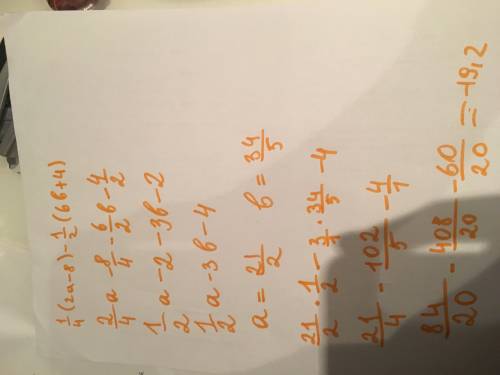 1/4 (2a-8) - 1/2 (6b+4)
2/4 a - 8/4 - 6/2 b - 4/2
1/2 a - 2 - 3b - 2
1/2 a - 3b - 4
a = 21/2 b = 34/5
21/2 · 1/2 - 3/1 · 34/5 - 4
21/4 - 102/5 - 4/1
84/20 - 408/20 - 60/20 = -19,2